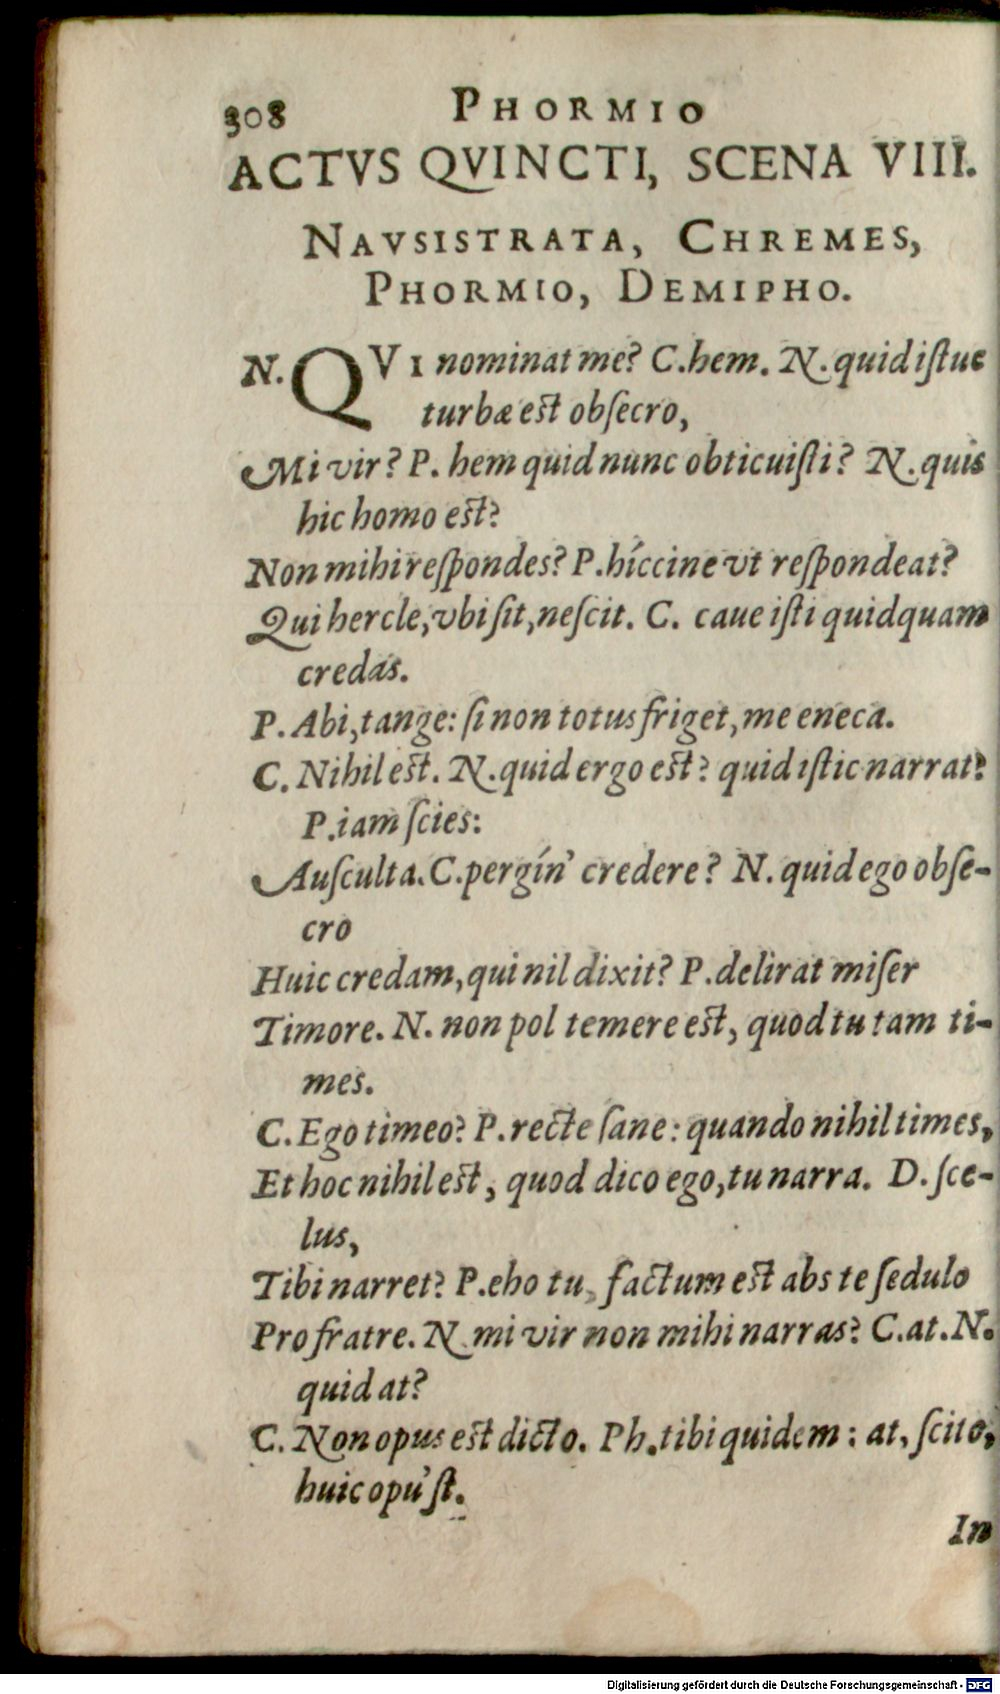 308 PHORMIO
ACTVS QVINCTI, SCENA VIII.
NAVSISTRATA, CHREMES,
PHORMIO, DEMIPHO.
N. QVI nominat me? C. hem. N. quid iſtuc
turbæ eſt obſecro,
Mi vir? P. hem quid nunc obticuiſti? N. quis
hic homo eſt?
Non mihi reſpondes? P. híccine vt reſpondeat?
Qui hercle, vbi ſit, neſcit. C. caue iſti quidquam
credas.
P. Abi, tange: ſi non totus friget, me eneca.
C. Nihil eſt. N. quid ergo eſt? quid iſtic narrat?
P. iam ſcies:
Auſculta. C. pergín' credere? N. quid ego obſe-
cro
Huic credam, qui nil dixit? P. delirat miſer
Timore. N. non pol temere eſt, quod tu tam ti-
mes.
C. Ego timeo? P. recte ſane: quando nihil times,
Et hoc nihil eſt, quod dico ego, tu narra. D. ſce-
lus,
Tibi narret? P. eho tu, factum eſt abs te ſedulo
Pro fratre. N. mi vir non mihi narras? C. at. N.
quid at?
C. Non opus eſt dicto. Ph. tibi quidem: at, ſcito,
huic opu'ſt.
In
Digitalisierung gefördert durch die Deutsche Forschungsgemeinschaft - DFG